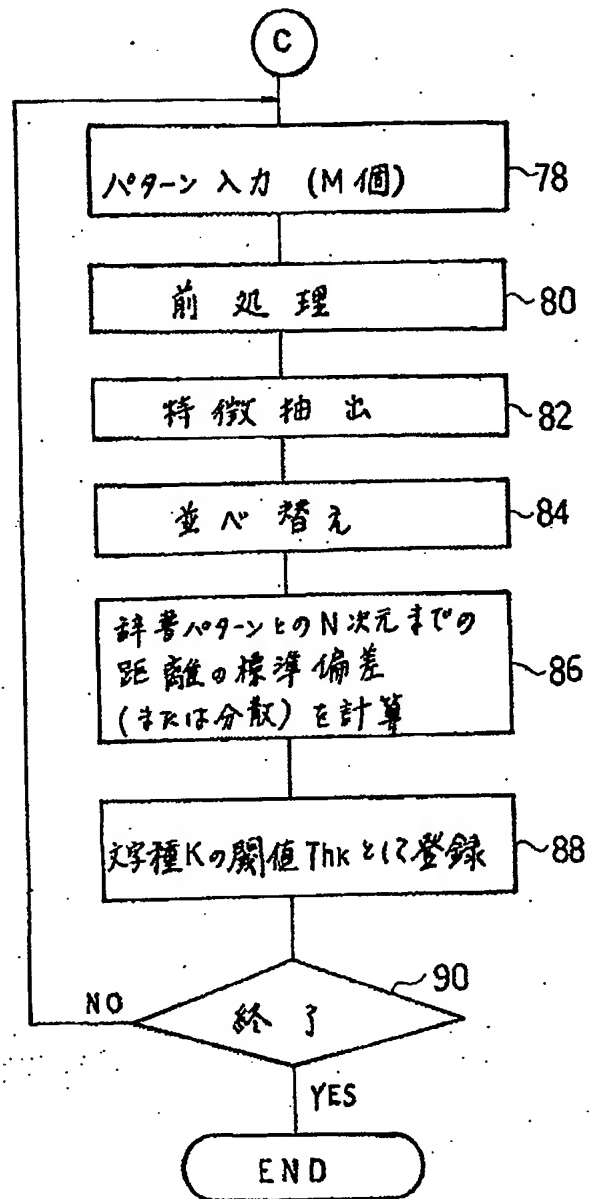 C
パターン入力 (M個)
78
前処理
80
特徴抽出
82
並べ替え
84
辞書パターンとのN次元までの
距離の標準偏差
(または分散)を計算
86
文字種Kの閾値Thkとして登録
88
90
NO
終了
YES
END